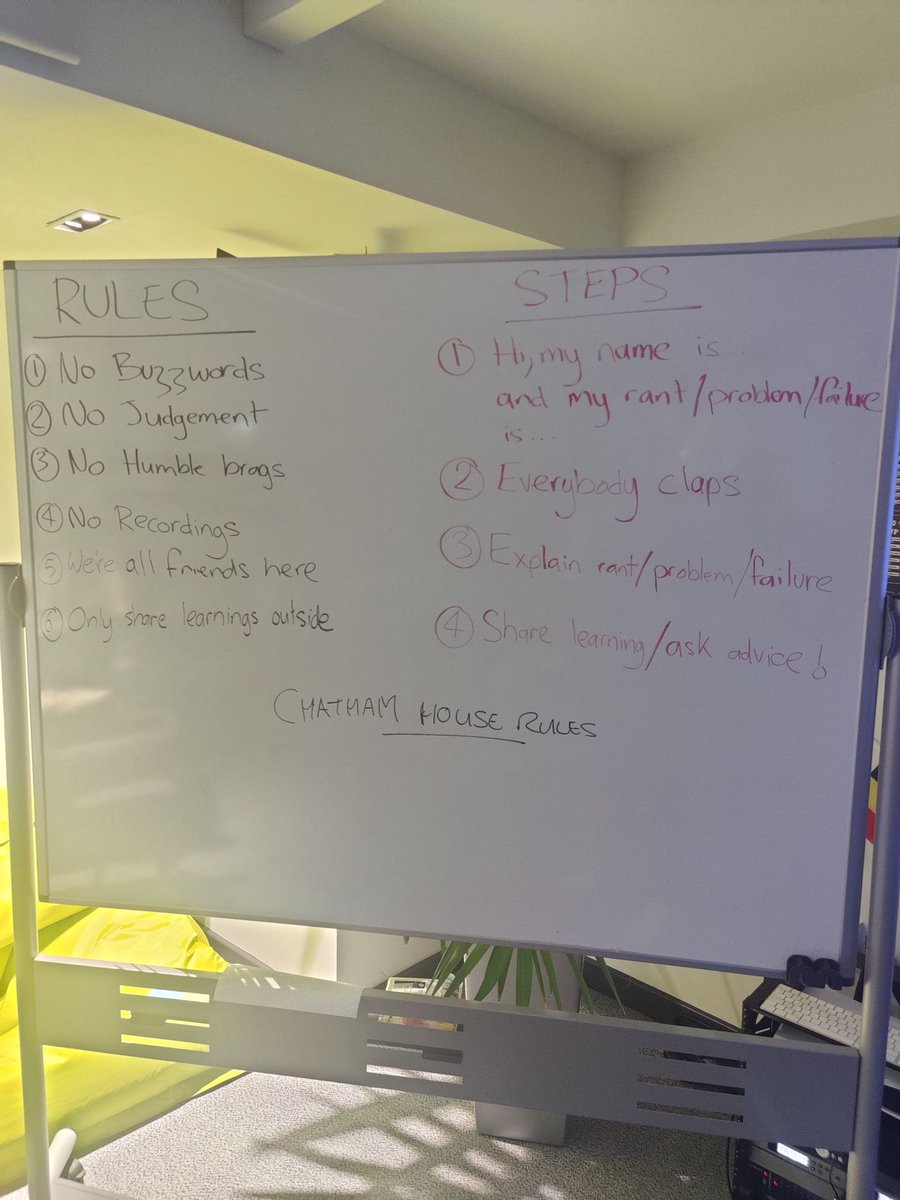 RULES
① No Buzzwords
② No Judgement
③ No Humble brags
④ No Recordings
⑤ We're all friends here
⑥ Only share learnings outside
STEPS
① Hi, my name is...
and my rant/problem/failure
is...
② Everybody claps
③ Explain rant/problem/failure
④ Share learning/ask advice!
CHATHAM HOUSE RULES